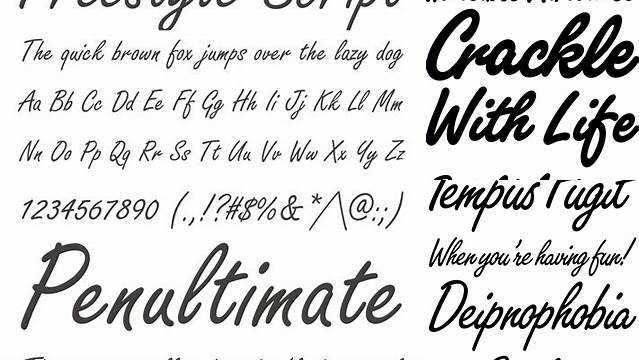 Freestyle Script
The quick brown fox jumps over the lazy dog
Aa Bb Cc Dd Ee Ff Gg Hh Ii Jj Kk Ll Mm
Nn Oo Pp Qq Rr Ss Tt Uu Vv Ww Xx Yy Zz
1234567890 (.,!?#$%&*/\@:;)
Penultimate
Crackle
With Life
Tempus Fugit
When you're having fun!
Deipnophobia